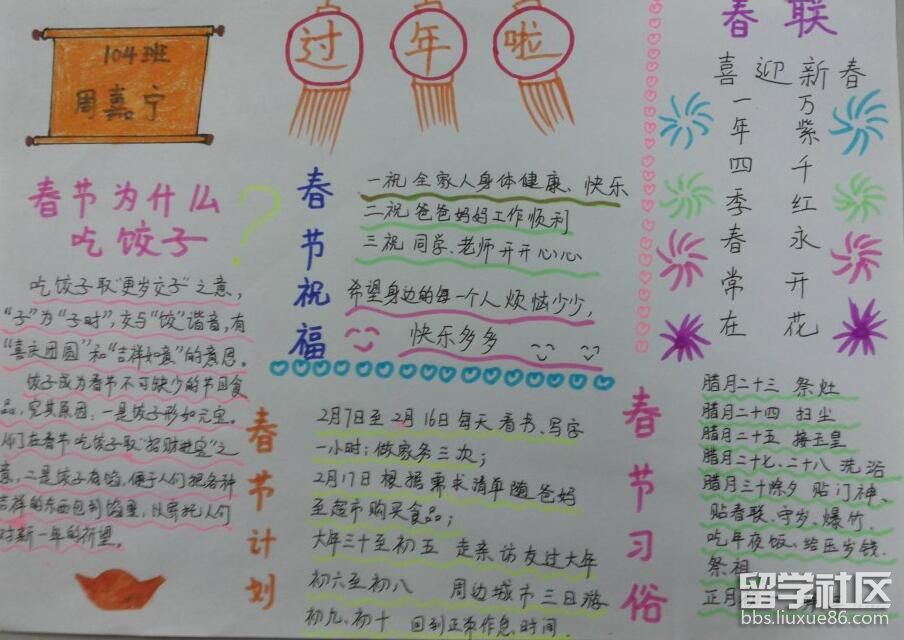 104班
周嘉宁
过年啦
春联
喜迎新春
万紫千红永开花
一年四季春常在
春节为什么
吃饺子?
吃饺子取"更岁交子"之意,
"子"为"子时",交与"饺"谐音,有
"喜庆团圆"和"吉祥如意"的意思。
饺子成为春节不可缺少的节目食
品,究其原因:一是饺子形如元宝。
人们在春节吃饺子取"招财进宝"之
意,二是饺子有馅,便于人们把各种
吉祥的东西包到馅里,以寄托人们
对新一年的祈望。
春节祝福
一祝全家人身体健康、快乐
二祝爸爸妈妈工作顺利
三祝同学、老师开开心心
希望身边的每一个人烦恼少少,
快乐多多
春节计划
2月7日至2月16日每天看书、写字
一小时;做家务三次;
2月17日根据需求清单随爸妈
至超市购买食品;
大年三十至初五 走亲访友过大年
初六至初八 周边城市三日游
初九、初十 回到正常作息时间.
春节习俗
腊月二十三 祭灶
腊月二十四 扫尘
腊月二十五 接玉皇
腊月二十七、二十八 洗浴
腊月三十除夕 贴门神、
贴春联、守岁、爆竹、
吃年夜饭、给压岁钱、
祭祖
正月
留学社区
bbs.liuxue86.com